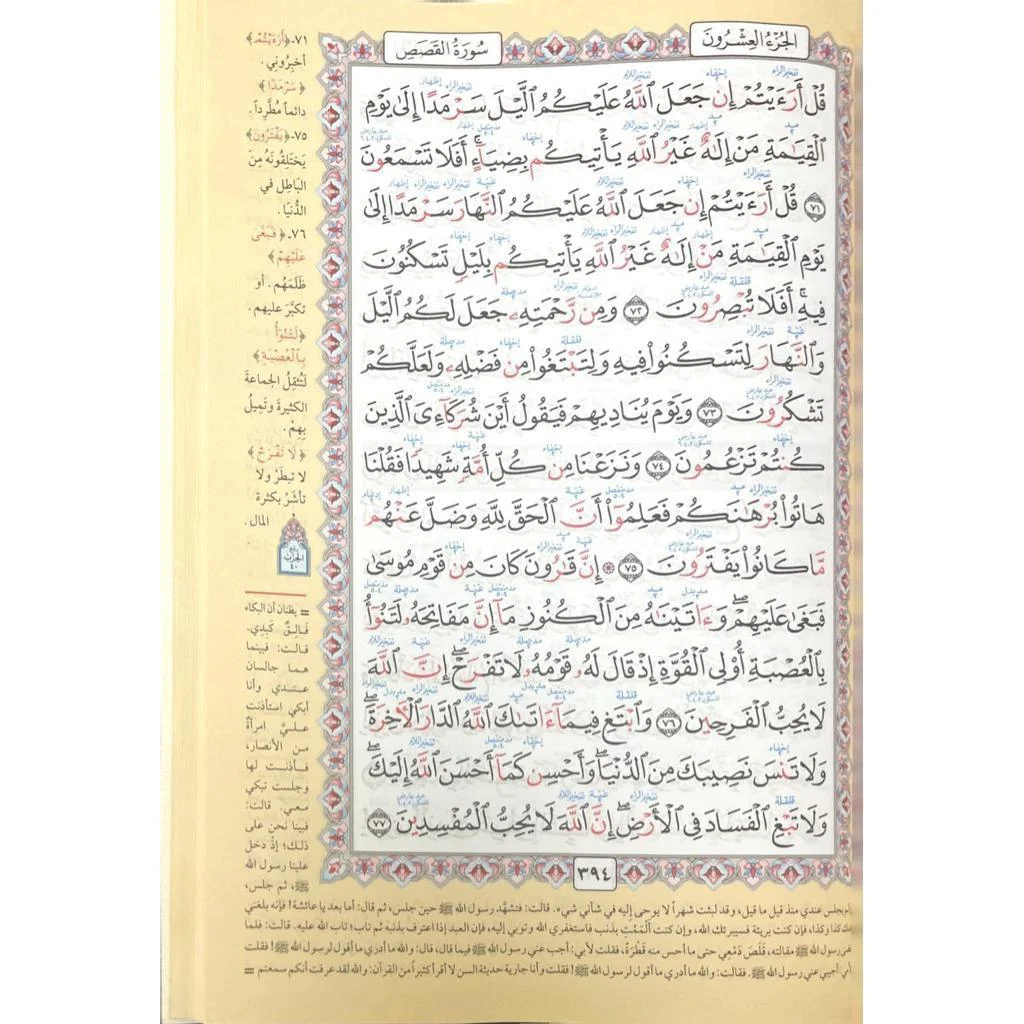 الجُزْءُ العِشْرُونَ
سُورَةُ القَصَصِ
قُلْ أَرَءَيْتُمْ إِن جَعَلَ ٱللَّهُ عَلَيْكُمُ ٱلَّيْلَ سَرْمَدًا إِلَىٰ يَوْمِ
ٱلْقِيَٰمَةِ مَنْ إِلَٰهٌ غَيْرُ ٱللَّهِ يَأْتِيكُم بِضِيَآءٍ ۖ أَفَلَا تَسْمَعُونَ
٧١ قُلْ أَرَءَيْتُمْ إِن جَعَلَ ٱللَّهُ عَلَيْكُمُ ٱلنَّهَارَ سَرْمَدًا إِلَىٰ
يَوْمِ ٱلْقِيَٰمَةِ مَنْ إِلَٰهٌ غَيْرُ ٱللَّهِ يَأْتِيكُم بِلَيْلٍ تَسْكُنُونَ
فِيهِ ۖ أَفَلَا تُبْصِرُونَ ٧٢ وَمِن رَّحْمَتِهِۦ جَعَلَ لَكُمُ ٱلَّيْلَ
وَٱلنَّهَارَ لِتَسْكُنُوا۟ فِيهِ وَلِتَبْتَغُوا۟ مِن فَضْلِهِۦ وَلَعَلَّكُمْ
تَشْكُرُونَ ٧٣ وَيَوْمَ يُنَادِيهِمْ فَيَقُولُ أَيْنَ شُرَكَآءِىَ ٱلَّذِينَ
كُنتُمْ تَزْعُمُونَ ٧٤ وَنَزَعْنَا مِن كُلِّ أُمَّةٍ شَهِيدًا فَقُلْنَا
هَاتُوا۟ بُرْهَٰنَكُمْ فَعَلِمُوٓا۟ أَنَّ ٱلْحَقَّ لِلَّهِ وَضَلَّ عَنْهُم
مَّا كَانُوا۟ يَفْتَرُونَ ٧٥ ۞ إِنَّ قَٰرُونَ كَانَ مِن قَوْمِ مُوسَىٰ
فَبَغَىٰ عَلَيْهِمْ ۖ وَءَاتَيْنَٰهُ مِنَ ٱلْكُنُوزِ مَآ إِنَّ مَفَاتِحَهُۥ لَتَنُوٓأُ
بِٱلْعُصْبَةِ أُو۟لِى ٱلْقُوَّةِ إِذْ قَالَ لَهُۥ قَوْمُهُۥ لَا تَفْرَحْ ۖ إِنَّ ٱللَّهَ
لَا يُحِبُّ ٱلْفَرِحِينَ ٧٦ وَٱبْتَغِ فِيمَآ ءَاتَىٰكَ ٱللَّهُ ٱلدَّارَ ٱلْءَاخِرَةَ ۖ
وَلَا تَنسَ نَصِيبَكَ مِنَ ٱلدُّنْيَا ۖ وَأَحْسِن كَمَآ أَحْسَنَ ٱللَّهُ إِلَيْكَ ۖ
وَلَا تَبْغِ ٱلْفَسَادَ فِى ٱلْأَرْضِ ۖ إِنَّ ٱللَّهَ لَا يُحِبُّ ٱلْمُفْسِدِينَ ٧٧
٣٩٤
٧١-﴿أَرَءَيْتُمْ﴾
أخبِرُوني.
﴿سَرْمَدًا﴾
دائماً مُطَّرِداً.
٧٥-﴿يَفْتَرُونَ﴾
يَختَلِقُونَهُ مِنَ
البَاطِلِ في
الدُّنيَا.
٧٦-﴿فَبَغَىٰ
عَلَيْهِمْ﴾
ظَلَمَهُم. أو
تكبَّر عليهم.
﴿لَتَنُوٓأُ
بِٱلْعُصْبَةِ﴾
لَتُثقِلُ الجماعةَ
الكثيرةَ وتَمِيلُ
بِهِمْ.
﴿لَا تَفْرَحْ﴾
لا تبطَرْ ولا
تأشَرْ بكثرة
المال.
ربع
الحزب
٤٠
= يظنان أن البكاء
فَالِقٌ كَبِدِي.
قالت: فبينما
هما جالسان
عندي وأنا
أبكي استأذنت
عليَّ امرأةٌ
من الأنصار،
فأذنت لها
وجلست تبكي
معي. قالت:
فبينا نحن على
ذلك؛ إذ دخل
علينا رسول الله
ﷺ، ثم جلس،
ولم يجلس عندي منذ قيل ما قيل، وقد لبثت شهراً لا يوحى إليه في شأني شيء. قالت: فتشهَّد رسول الله ﷺ حين جلس، ثم قال: أما بعد يا عائشة! فإنه بلغني
عنك كذا وكذا، فإن كنت بريئة فسيبرئك الله، وإن كنت أَلْمَمْتِ بذنب فاستغفري الله وتوبي إليه، فإن العبد إذا اعترف بذنبه ثم تاب؛ تاب الله عليه. قالت: فلما
قضى رسول الله ﷺ مقالته، قَلَصَ دَمْعِي حتى ما أحس منه قطْرَةً، فقلت لأبي: أجب عني رسول الله ﷺ فيما قال، قال: والله ما أدري ما أقول لرسول الله ﷺ! فقلت
لأمي: أجيبي عني رسول الله ﷺ. فقالت: والله ما أدري ما أقول لرسول الله ﷺ! فقلت وأنا جارية حديثة السن لا أقرأ كثيراً من القرآن: والله لقد عرفت أنكم سمعتم =